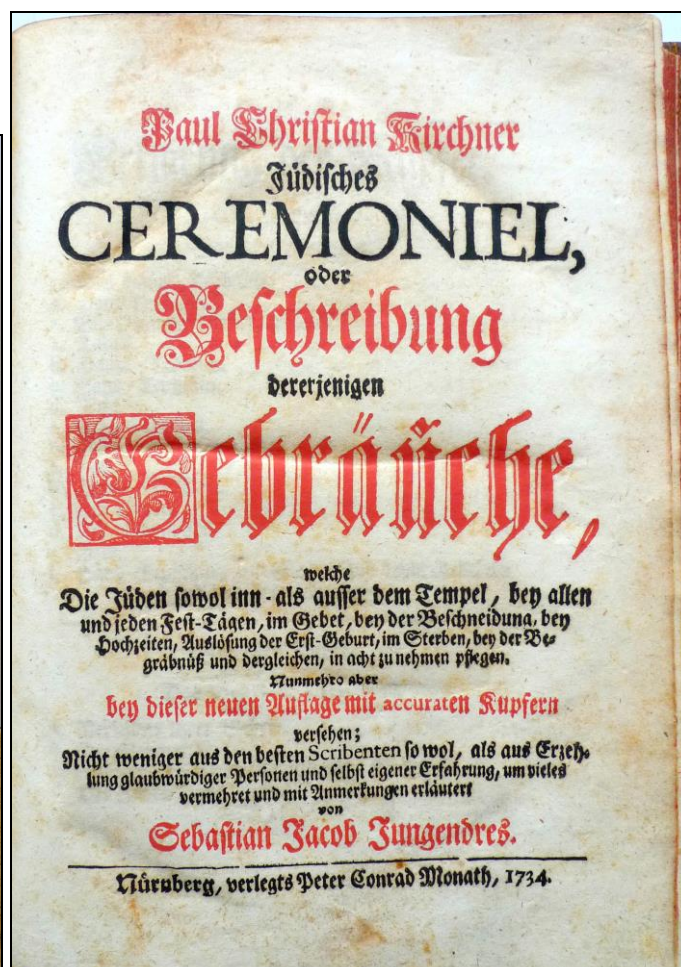 Paul Christian Kirchner
Jüdisches
CEREMONIEL,
oder
Beschreibung
dererjenigen
Gebräuche,
welche
Die Jüden sowol inn- als ausser dem Tempel, bey allen
und jeden Fest-Tägen, im Gebet, bey der Beschneidung, bey
Hochzeiten, Auslösung der Erst-Geburt, im Sterben, bey der Be-
gräbnüß und dergleichen, in acht zu nehmen pflegen.
Nunmehro aber
bey dieser neuen Auflage mit accuraten Kupfern
versehen;
Nicht weniger aus den besten Scribenten so wol, als aus Erzeh-
lung glaubwürdiger Personen und selbst eigener Erfahrung, um vieles
vermehret und mit Anmerkungen erläutert
von
Sebastian Jacob Jungendres.
Nürnberg, verlegts Peter Conrad Monath, 1734.